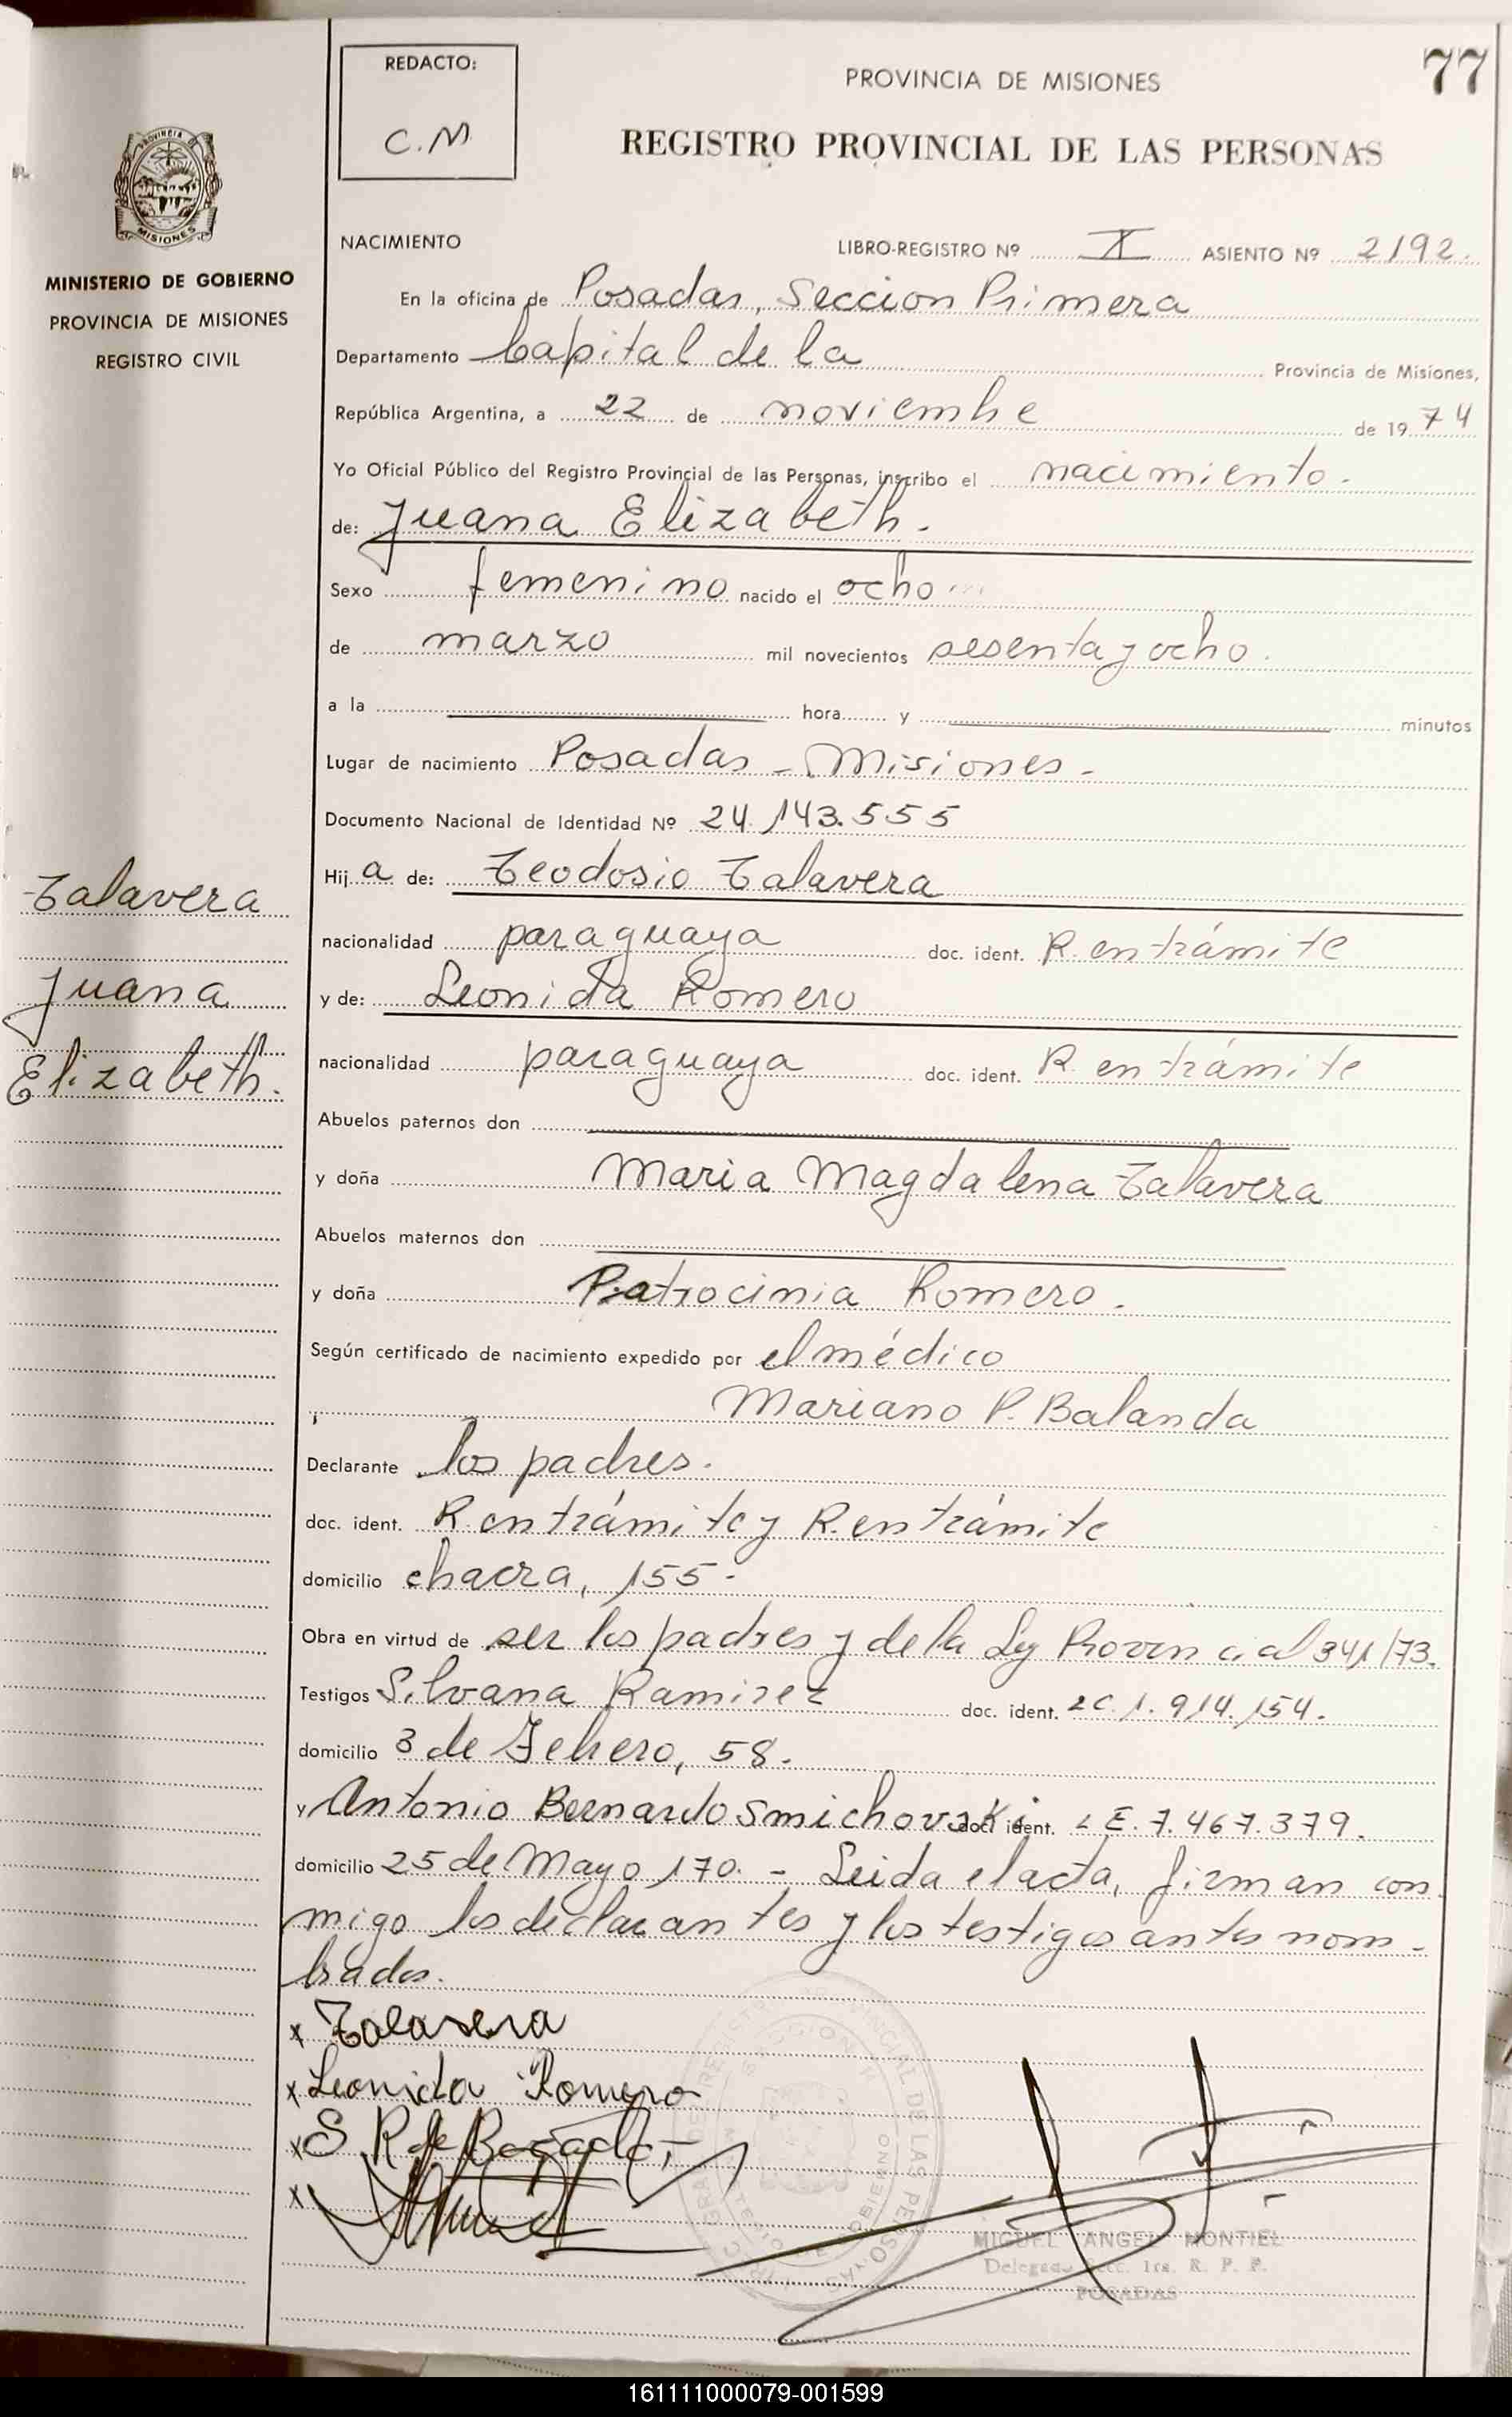 77
REDACTO:
C.M.
PROVINCIA DE MISIONES
REGISTRO PROVINCIAL DE LAS PERSONAS
PROVINCIA
MISIONES
MINISTERIO DE GOBIERNO
PROVINCIA DE MISIONES
REGISTRO CIVIL
NACIMIENTO LIBRO-REGISTRO Nº X ASIENTO Nº 2192.
En la oficina de Posadas, Seccion Primera
Departamento Capital de la Provincia de Misiones,
República Argentina, a 22 de noviembre de 1974
Yo Oficial Público del Registro Provincial de las Personas, inscribo el nacimiento.
de: Juana Elizabeth.
Sexo femenino nacido el ocho
de marzo mil novecientos sesenta y ocho.
a la hora y minutos
Lugar de nacimiento Posadas - Misiones -
Documento Nacional de Identidad Nº 24.143.555
Hija de: Teodosio Talavera
Talavera
nacionalidad paraguaya doc. ident. R. en trámite
Juana
y de: Leonida Romero
Elizabeth.
nacionalidad paraguaya doc. ident. R. en trámite
Abuelos paternos don
y doña Maria Magdalena Talavera
Abuelos maternos don
y doña Patrocinia Romero.
Según certificado de nacimiento expedido por el médico
Mariano P. Balanda
Declarante los padres.
doc. ident. R. en trámite y R. en trámite
domicilio chacra, 155-
Obra en virtud de ser los padres y de la Ley Provincial 341/73.
Testigos Silvana Ramirez doc. ident. LC. 1.914.154.
domicilio 3 de Febrero, 58.
y Antonio Bernardo Smichovski doc. ident. LE. 7.467.379.
domicilio 25 de Mayo 170. - Leida el acta, firman con
migo los declarantes y los testigos antes nom-
brados.
x Talavera
x Leonida Romero
x S R de Bogado
x
MIGUEL ANGEL MONTIEL
Delegado Secc. 1ra. R. P. P.
POSADAS
161111000079-001599